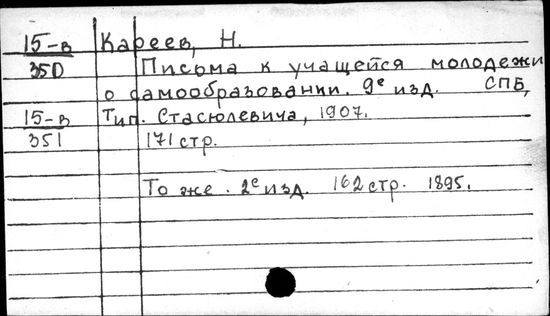 15-в Кареев, Н.
350 Письма к учащейся молодежи
о самообразовании. 9е изд. СПБ,
15-в Тип. Стасюлевича, 1907.
351 171 стр.
То же. 2е изд. 162 стр. 1895.